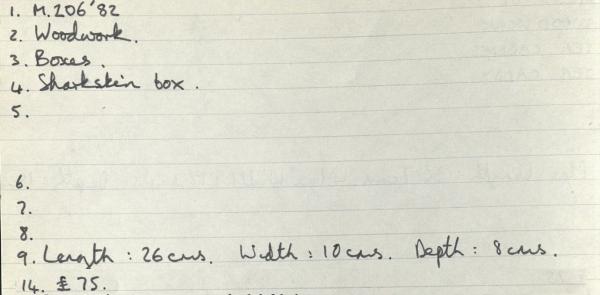 1. M.206'82
2. Woodwork.
3. Boxes.
4. Sharkskin box.
5.
6.
7.
8.
9. Length : 26 cms. Width : 10 cms. Depth : 8 cms.
14. £75.